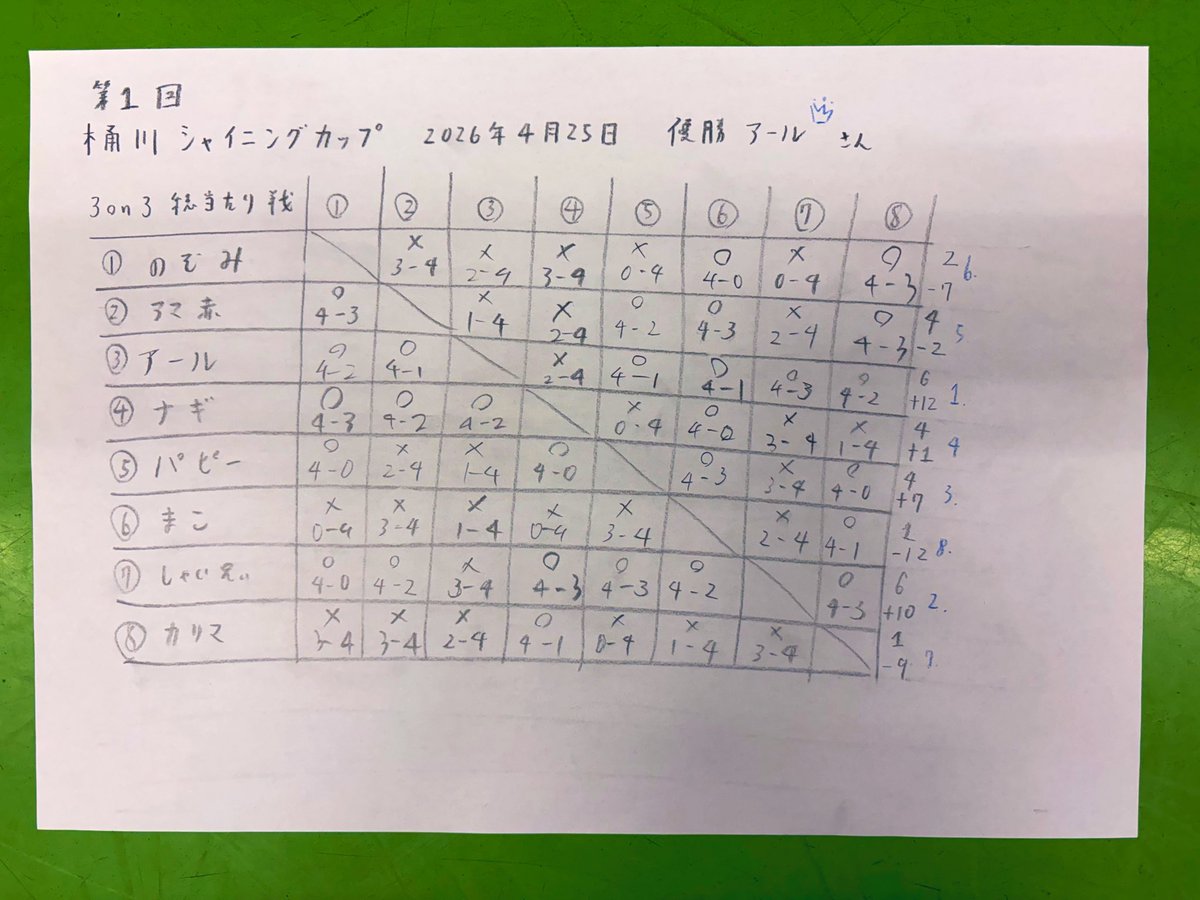 第1回
桶川 シャイニングカップ 2026年4月25日 優勝 アールさん
3on3 総当たり戦 ① ② ③ ④ ⑤ ⑥ ⑦ ⑧
① のぞみ × 3-4 × 2-4 × 3-4 × 0-4 ○ 4-0 × 0-4 ○ 4-3 2 -7 6.
② アマ赤 ○ 4-3 × 1-4 × 2-4 ○ 4-2 ○ 4-3 × 2-4 ○ 4-3 4 -2 5
③ アール ○ 4-2 ○ 4-1 × 2-4 ○ 4-1 ○ 4-1 ○ 4-3 ○ 4-2 6 +12 1.
④ ナギ ○ 4-3 ○ 4-2 ○ 4-2 × 0-4 ○ 4-0 × 3-4 × 1-4 4 +1 4
⑤ パピー ○ 4-0 × 2-4 × 1-4 ○ 4-0 ○ 4-3 × 3-4 ○ 4-0 4 +7 3.
⑥ まこ × 0-4 × 3-4 × 1-4 × 0-4 × 3-4 × 2-4 ○ 4-1 1 -12 8.
⑦ しゃいえぃ ○ 4-0 ○ 4-2 × 3-4 ○ 4-3 ○ 4-3 ○ 4-2 ○ 4-3 6 +10 2.
⑧ カリマ × 3-4 × 3-4 × 2-4 ○ 4-1 × 0-4 × 1-4 × 3-4 1 -9 7.